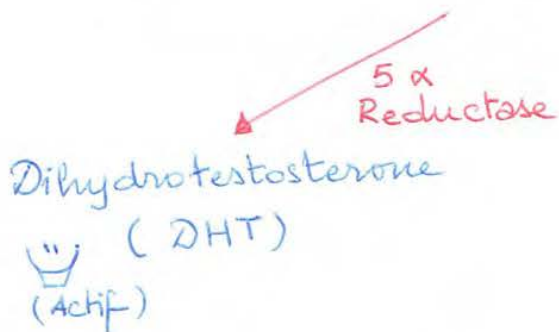 5 α
Reductase
Dihydrotestosterone
(DHT)
(Actif)